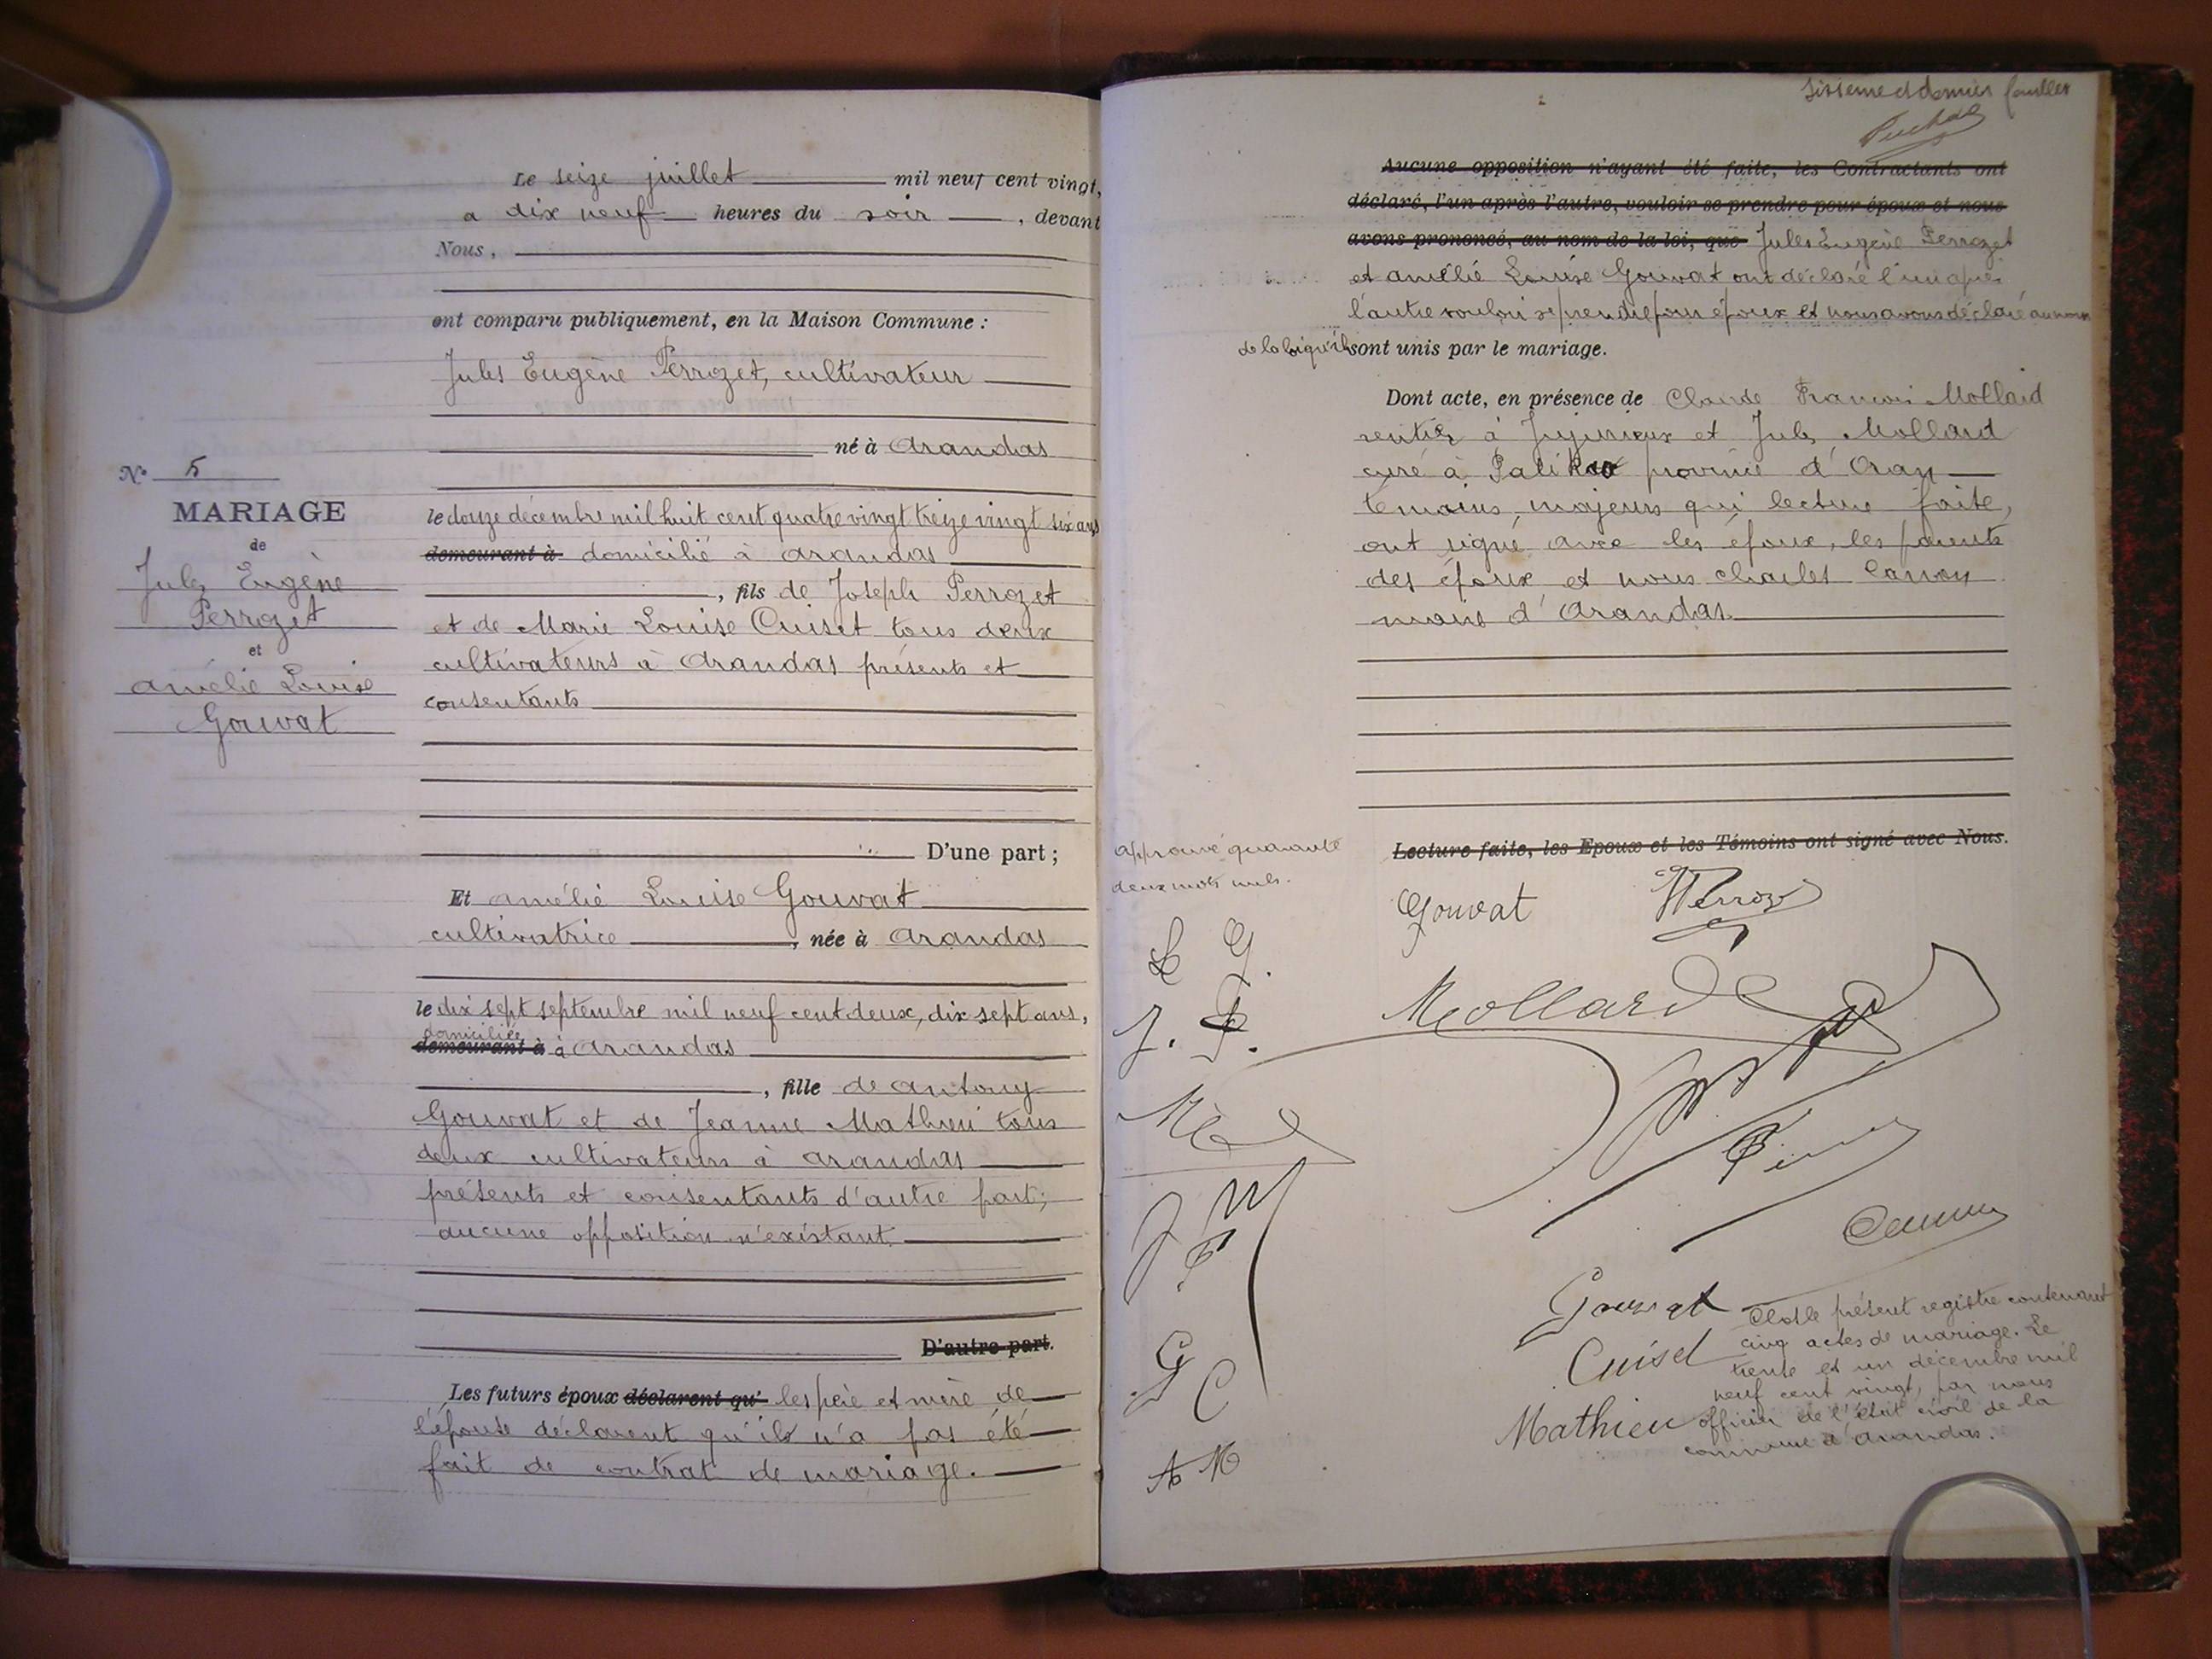 Le seize juillet mil neuf cent vingt,
à dix neuf heures du soir, devant
Nous,
ont comparu publiquement, en la Maison Commune :
Jules Eugène Perrozet, cultivateur
né à Arandas
N° 5
MARIAGE
de
Jules Eugène
Perrozet
et
Amélie Louise
Gouvat
le douze décembre mil huit cent quatre vingt treize vingt six ans
demeurant à domicilié à Arandas
, fils de Joseph Perrozet
et de Marie Louise Cuiset tous deux
cultivateurs à Arandas présents et
consentants
D'une part ;
Et Amélie Louise Gouvat
cultivatrice, née à Arandas
le dix sept septembre mil neuf cent deux, dix sept ans,
domiciliée
demeurant à à Arandas
, fille de Antony
Gouvat et de Jeanne Mathieu tous
deux cultivateurs à Arandas
présents et consentants d'autre part;
aucune opposition n'existant
D'autre part.
Les futurs époux déclarent qu' les père et mère de
l'épouse déclarent qu'ils n'a pas été
fait de contrat de mariage.
sixième et dernier feuillet
Aucune opposition n'ayant été faite, les Contractants ont
déclaré, l'un après l'autre, vouloir se prendre pour époux et nous
avons prononcé, au nom de la loi, que Jules Eugène Perrozet
et Amélie Louise Gouvat ont déclaré l'un après
l'autre vouloir se prendre pour époux et nous avons déclaré au nom
de la loi qu'ils sont unis par le mariage.
Dont acte, en présence de Claude François Mollard
rentier à Jujurieux et Jules Mollard
curé à Palikao province d'Oran
témoins majeurs qui lecture faite,
ont signé avec les époux, les parents
des époux et nous Charles Carron
maire d'Arandas.
Approuvé quarante
deux mots nuls.
Lecture faite, les Epoux et les Témoins ont signé avec Nous.
Gouvat
L G.
J. P.
Mollard
J M
P
Gouvat
Cuiset
G C
Mathieu
A M
Clos le présent registre contenant
cinq actes de mariage. Le
trente et un décembre mil
neuf cent vingt, par nous
officier de l'état civil de la
commune d'Arandas.